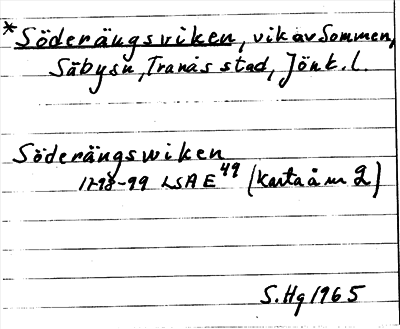 *Söderängsviken, vik av Sommen,
Säbysn, Tranås stad, Jönk. l.
Söderängswiken
1798-99 LSA E 49 (Karta å nr 2)
S. Hg 1965